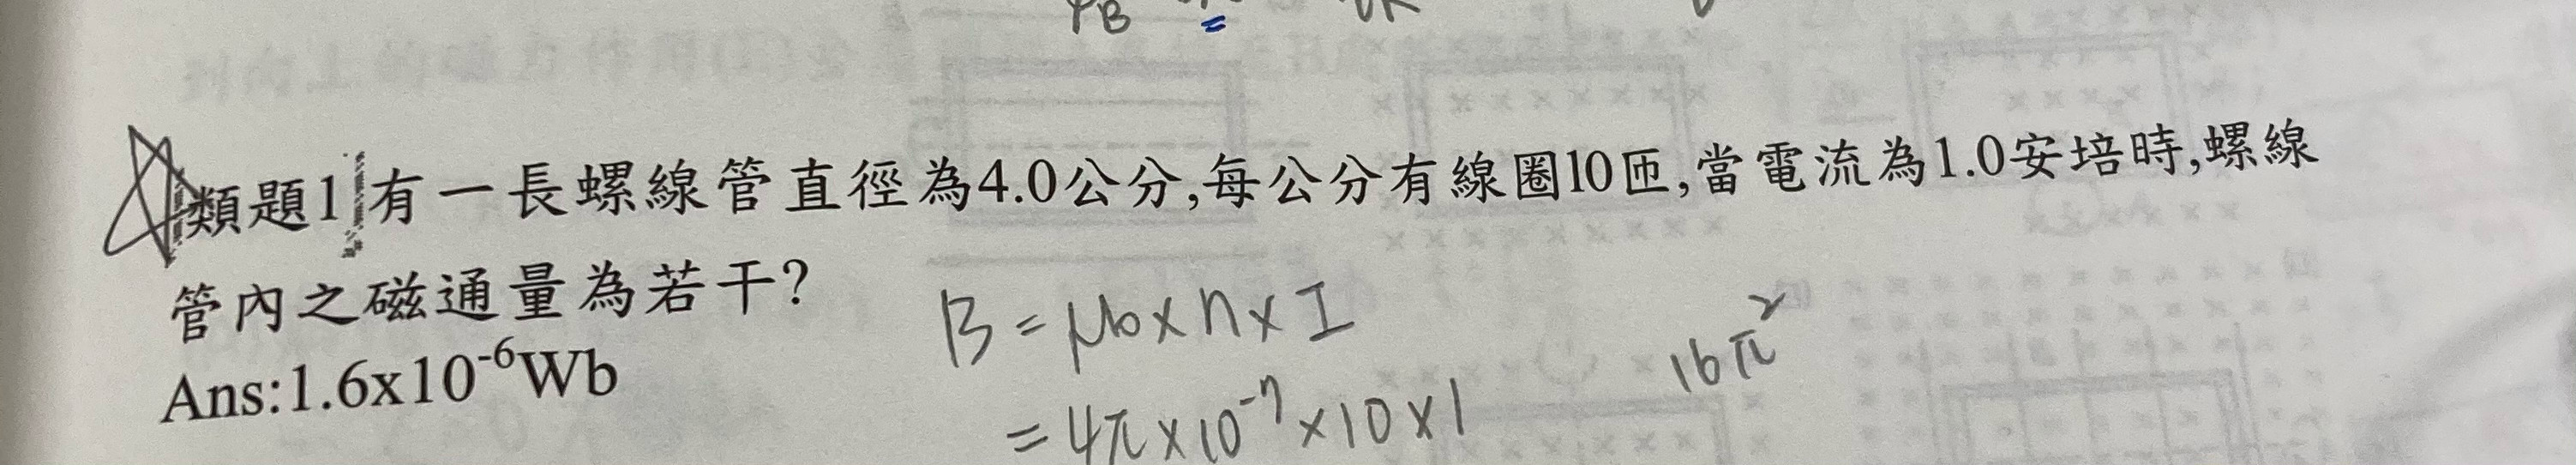 類題1 有一長螺線管直徑為4.0公分,每公分有線圈10匝,當電流為1.0安培時,螺線
管內之磁通量為若干?
Ans:1.6x10⁻⁶Wb
B = μ₀ × n × I
= 4π × 10⁻⁷ × 10 × 1
16π²